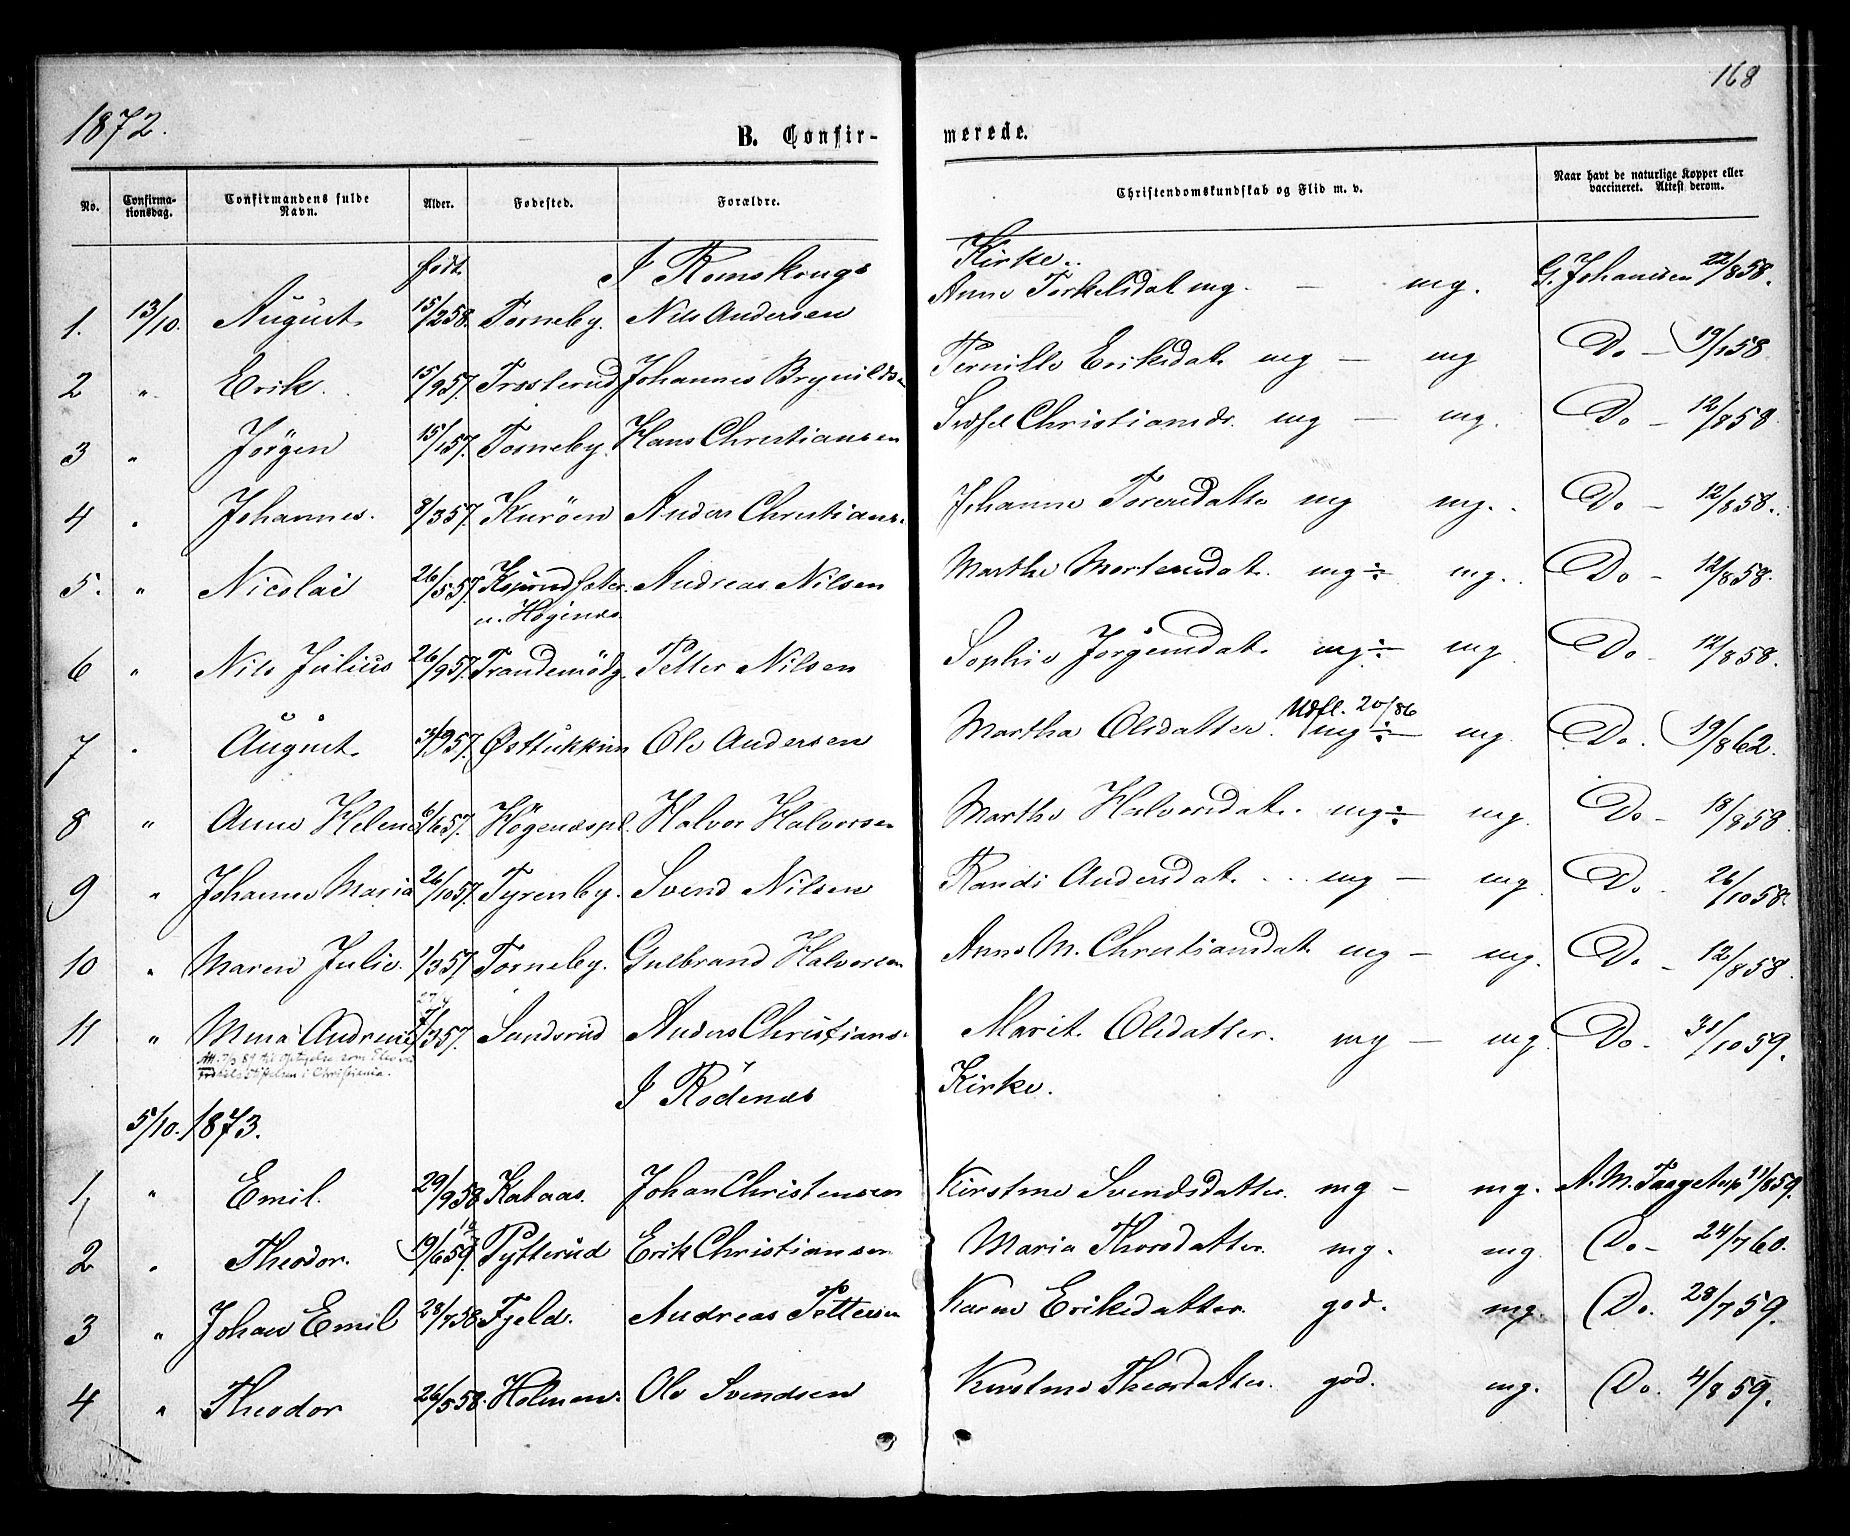 168
1872.
B. Confir- merede.
No. Confirma- tionsdag. Confirmandens fulde Navn. Alder. Fødested. Forældre. Christendomskundskab og Flid m. v. Naar havt de naturlige Kopper eller vaccineret. Attest derom.
født I Romskougs Kirke.
1. 13/10. August. 15/2 58. Torneby. Nils Andersen Anne Torkelsdat. mg. — mg. G. Johansen 22/8 58.
2 " Erik. 15/9 57. Trosterud Johannes Brynilds Pernille Eriksdat. mg — mg Do — 19/1 58
3 " Jørgen 15/1 57. Torneby. Hans Christiansen Christiansdr. mg — mg. Do — 12/8 58
4 " Johannes. 8/3 57. Kurøen Anders Christians. Johanne Toresdatte mg mg. Do — 12/8 58.
5. " Nicolai 26/5 57. u. Høgenæs Andreas Nilsen Marthe Mortensdat. mg÷ mg. Do — 12/8 58.
6 " Nils Julius 26/9 57. Petter Nilsen Sophie Jørgensdat. mg÷ mg Do — 12/8 58.
Udfl. 20/86
7 " August. 3/9 57. Østtukkun Ole Andersen Martha Olsdatter. mg÷ mg Do. 19/8 62.
8 " Anne Helene 6/6 57. Høgenæspl. Halvor Halvorsen Marthe Halvorsdat. mg÷ mg. Do — 18/8 58.
9 " Johanne Maria 26/10 57. Tyrenby. Svend Nilsen Randi Andersdat. mg — mg Do. 26/10 58.
10 " Maren Julie. 1/3 57 Torneby. Gulbrand Halvorsen Anne M. Christiansdat. mg — mg. Do — 12/8 58.
11 " Mina Andrine 7/3 57. Sandsrud Anders Christians. Marit Olsdatter. mg — mg. Do. 31/10 59.
som i Christiania.
I Rødenæs Kirke.
5/10. 1873.
1, " Emil. 29/9 58 Kataas. Johan Christensen Kirstine Svendsdatter. mg — mg. A. M. Taagstup 11/8 59.
2 " Theodor. 19/6 59. Tytterud Erik Christiansen Maria Thorsdatter. mg. mg. Do — 24/7 60.
3 " Johan Emil 28/7 58 Fjeld. Andreas Pettersen Karen Eriksdatter. god. mg. Do. 28/7 59.
4 " Theodor 26/5 58. Holmen. Ole Svendsen Kirstine Theorsdatter. god. mg. Do. 4/8 59.